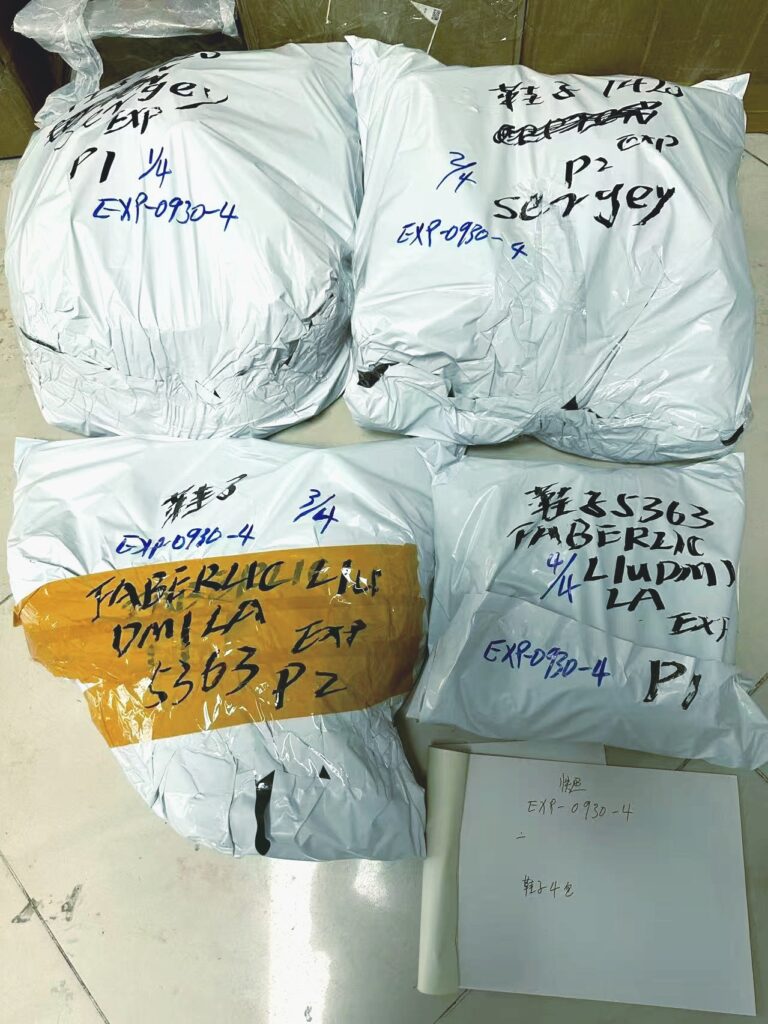 EXP
P1 1/4
EXP-0930-4
鞋子 1420
EXP
2/4
P2
sergey
EXP-0930-4
鞋子
3/4
EXP-0930-4
FABERLIC LIU
DMILA
EXP
5363 P2
鞋子5363
FABERLIC
4/4 LIUDMI
LA
EXP
EXP-0930-4
P1
EXP-0930-4
鞋子4包